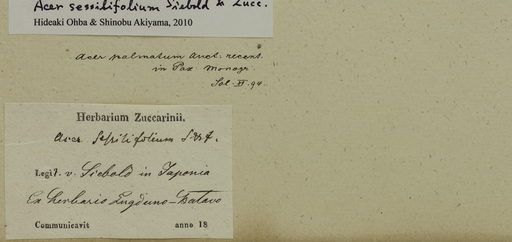 Acer sessilifolium Siebold & Zucc.
Hideaki Ohba & Shinobu Akiyama, 2010
Acer palmatum Auct. recent.
in Pax Monogr.
Herbarium Zuccarinii.
Acer sessilifolium
Legit. v. Siebold in Japonia
Ex herbario Lugduno-Batavo
Communicavit anno 18